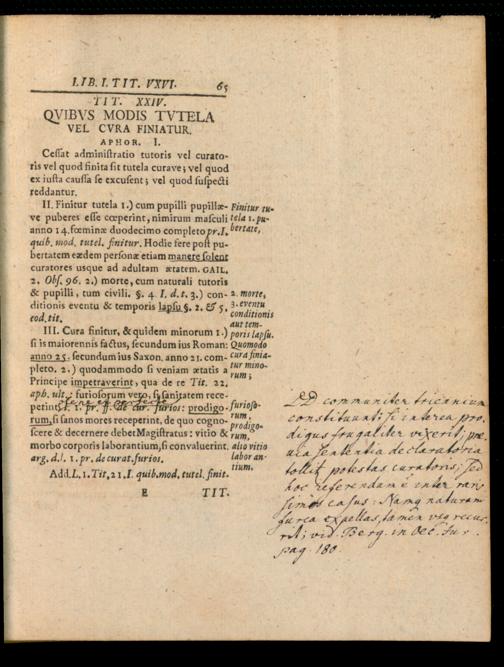 LIB. I. TIT. VXVI. 65
TIT. XXIV.
QVIBVS MODIS TVTELA
VEL CVRA FINIATUR.
APHOR. I.
Cessat administratio tutoris vel curato-
ris vel quod finita sit tutela curave; vel quod
ex iusta caussa se excusent; vel quod suspecti
reddantur.
II. Finitur tutela 1.) cum pupilli pupillæ-
ve puberes esse cœperint, nimirum masculi
anno 14. fœminæ duodecimo completo pr. I.
quib. mod. tutel. finitur. Hodie fere post pu-
bertatem eædem personæ etiam manere solent
curatores usque ad adultam ætatem. GAIL.
2. Obs. 96. 2.) morte, cum naturali tutoris
& pupilli, tum civili. §. 4. I. d. t. 3.) con-
ditionis eventu & temporis lapsu §. 2. & 5.
eod. tit.
III. Cura finitur, & quidem minorum 1.)
si is maiorennis factus, secundum ius Roman:
anno 25. secundum ius Saxon. anno 21. com-
pleto. 2.) quodammodo si veniam ætatis a
Principe impetraverint, qua de re Tit. 22.
aph. ult.: furiosorum vero, si sanitatem rece-
perint, l. 1. pr. ff. de cur. furios: prodigo-
rum, si sanos mores receperint, de quo cogno-
scere & decernere debet Magistratus: vitio &
morbo corporis laborantium, si convaluerint.
arg. d. l. 1. pr. de curat. furios.
Add. L. 1. Tit. 21. I. quib. mod. tutel. finit.
E TIT.
Finitur tu-
tela 1. pu-
bertate,
2. morte,
3. eventu
conditionis
aut tem-
poris lapsu.
Quomodo
cura finia-
tur mino-
rum;
furioso-
rum,
prodigo-
rum,
alio vitio
laboran-
tium.
DD communiter
constituunt: si interea pro-
digus frugaliter vixerit,
sententia declaratoria
tollit potestas curatoris; sed
hoc referendum inter raris
simos casus: Namq naturam
furca expellas, tamen recur
rit; vid. Berg. in Oec. Jur.
pag. 180.